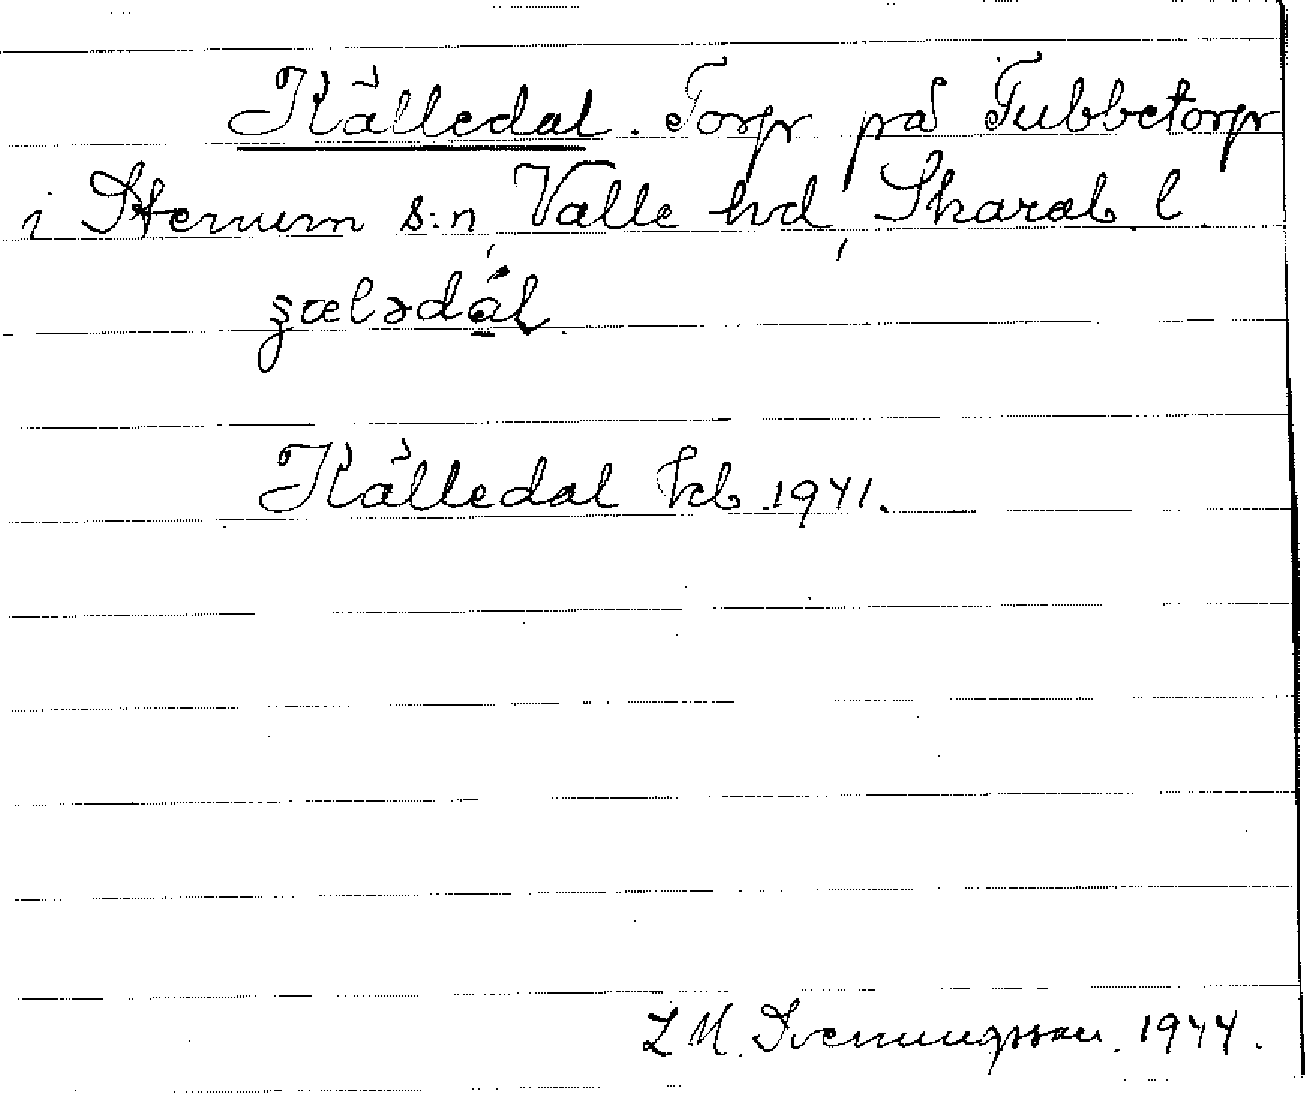 Källedal. Torp på Tubbetorp
i Stenum s:n, Valle hd, Skarab. l.
Källedal kb 1941.
L M. Svenungsson. 1944.